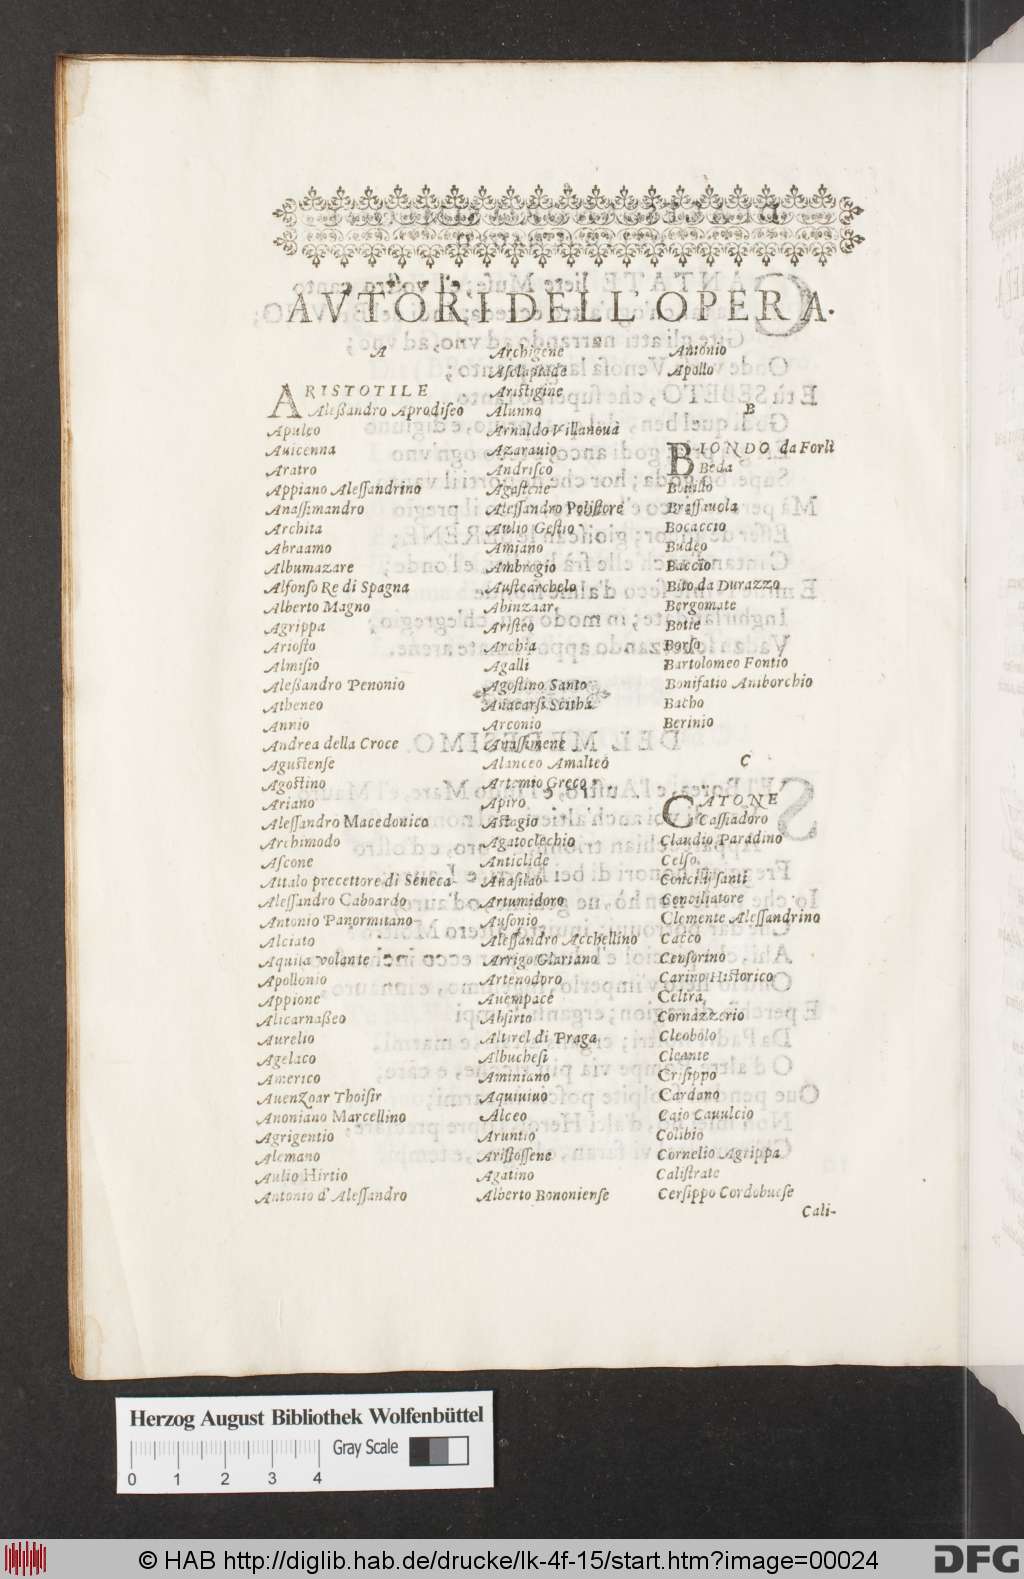 AVTORI DELL'OPERA.
A
ARISTOTILE
Aleßandro Aprodiseo
Apuleo
Auicenna
Aratro
Appiano Alessandrino
Anassimandro
Archita
Abraamo
Albumazare
Alfonso Re di Spagna
Alberto Magno
Agrippa
Ariosto
Almisio
Aleßandro Penonio
Atheneo
Annio
Andrea della Croce
Agustense
Agostino
Ariano
Alessandro Macedonico
Archimodo
Ascone
Attalo precettore di Seneca
Alessandro Caboardo
Antonio Panormitano
Alciato
Aquila volante
Apollonio
Appione
Alicarnaßeo
Aurelio
Agelaco
Americo
Auenzoar Thoisir
Anoniano Marcellino
Agrigentio
Alemano
Aulio Hirtio
Antonio d'Alessandro
Archigene
Asclapeide
Aristigine
Alunno
Arnaldo Villanoua
Azarauio
Andrisco
Agastene
Alessandro Polistore
Aulio Gestio
Amiano
Ambrogio
Austearchelo
Abinzaar
Aristeo
Archia
Agalli
Agostino Santo
Anacarsi Scitha
Arconio
Anassimene
Alanceo Amalteo
Artemio Greco
Apiro
Astagio
Agatoclechio
Anticlide
Anasilao
Artumidoro
Ausonio
Alessandro Acchellino
Arrigo Glariano
Artenodoro
Auempace
Absirto
Altirel di Praga
Albuchesi
Aminiano
Aquiuiuo
Alceo
Aruntio
Aristossene
Agatino
Alberto Bononiense
Antonio
Apollo
B
BIONDO da Forlì
Beda
Boiasto
Brassauola
Bocaccio
Budeo
Baccio
Bito da Durazzo
Bergomate
Botie
Borso
Bartolomeo Fontio
Bonifatio Amborchio
Batho
Berinio
C
CATONE
Cassiadoro
Claudio Paradino
Celso
Concilij santi
Conciliatore
Clemente Alessandrino
Cacco
Censorino
Carino Historico
Celtra
Cornazzerio
Cleobolo
Cleante
Crisippo
Cardano
Caio Cauulcio
Colibio
Cornelio Agrippa
Calistrate
Cersippo Cordobuese
Cali-
Herzog August Bibliothek Wolfenbüttel
Gray Scale
0 1 2 3 4
© HAB http://diglib.hab.de/drucke/lk-4f-15/start.htm?image=00024
DFG